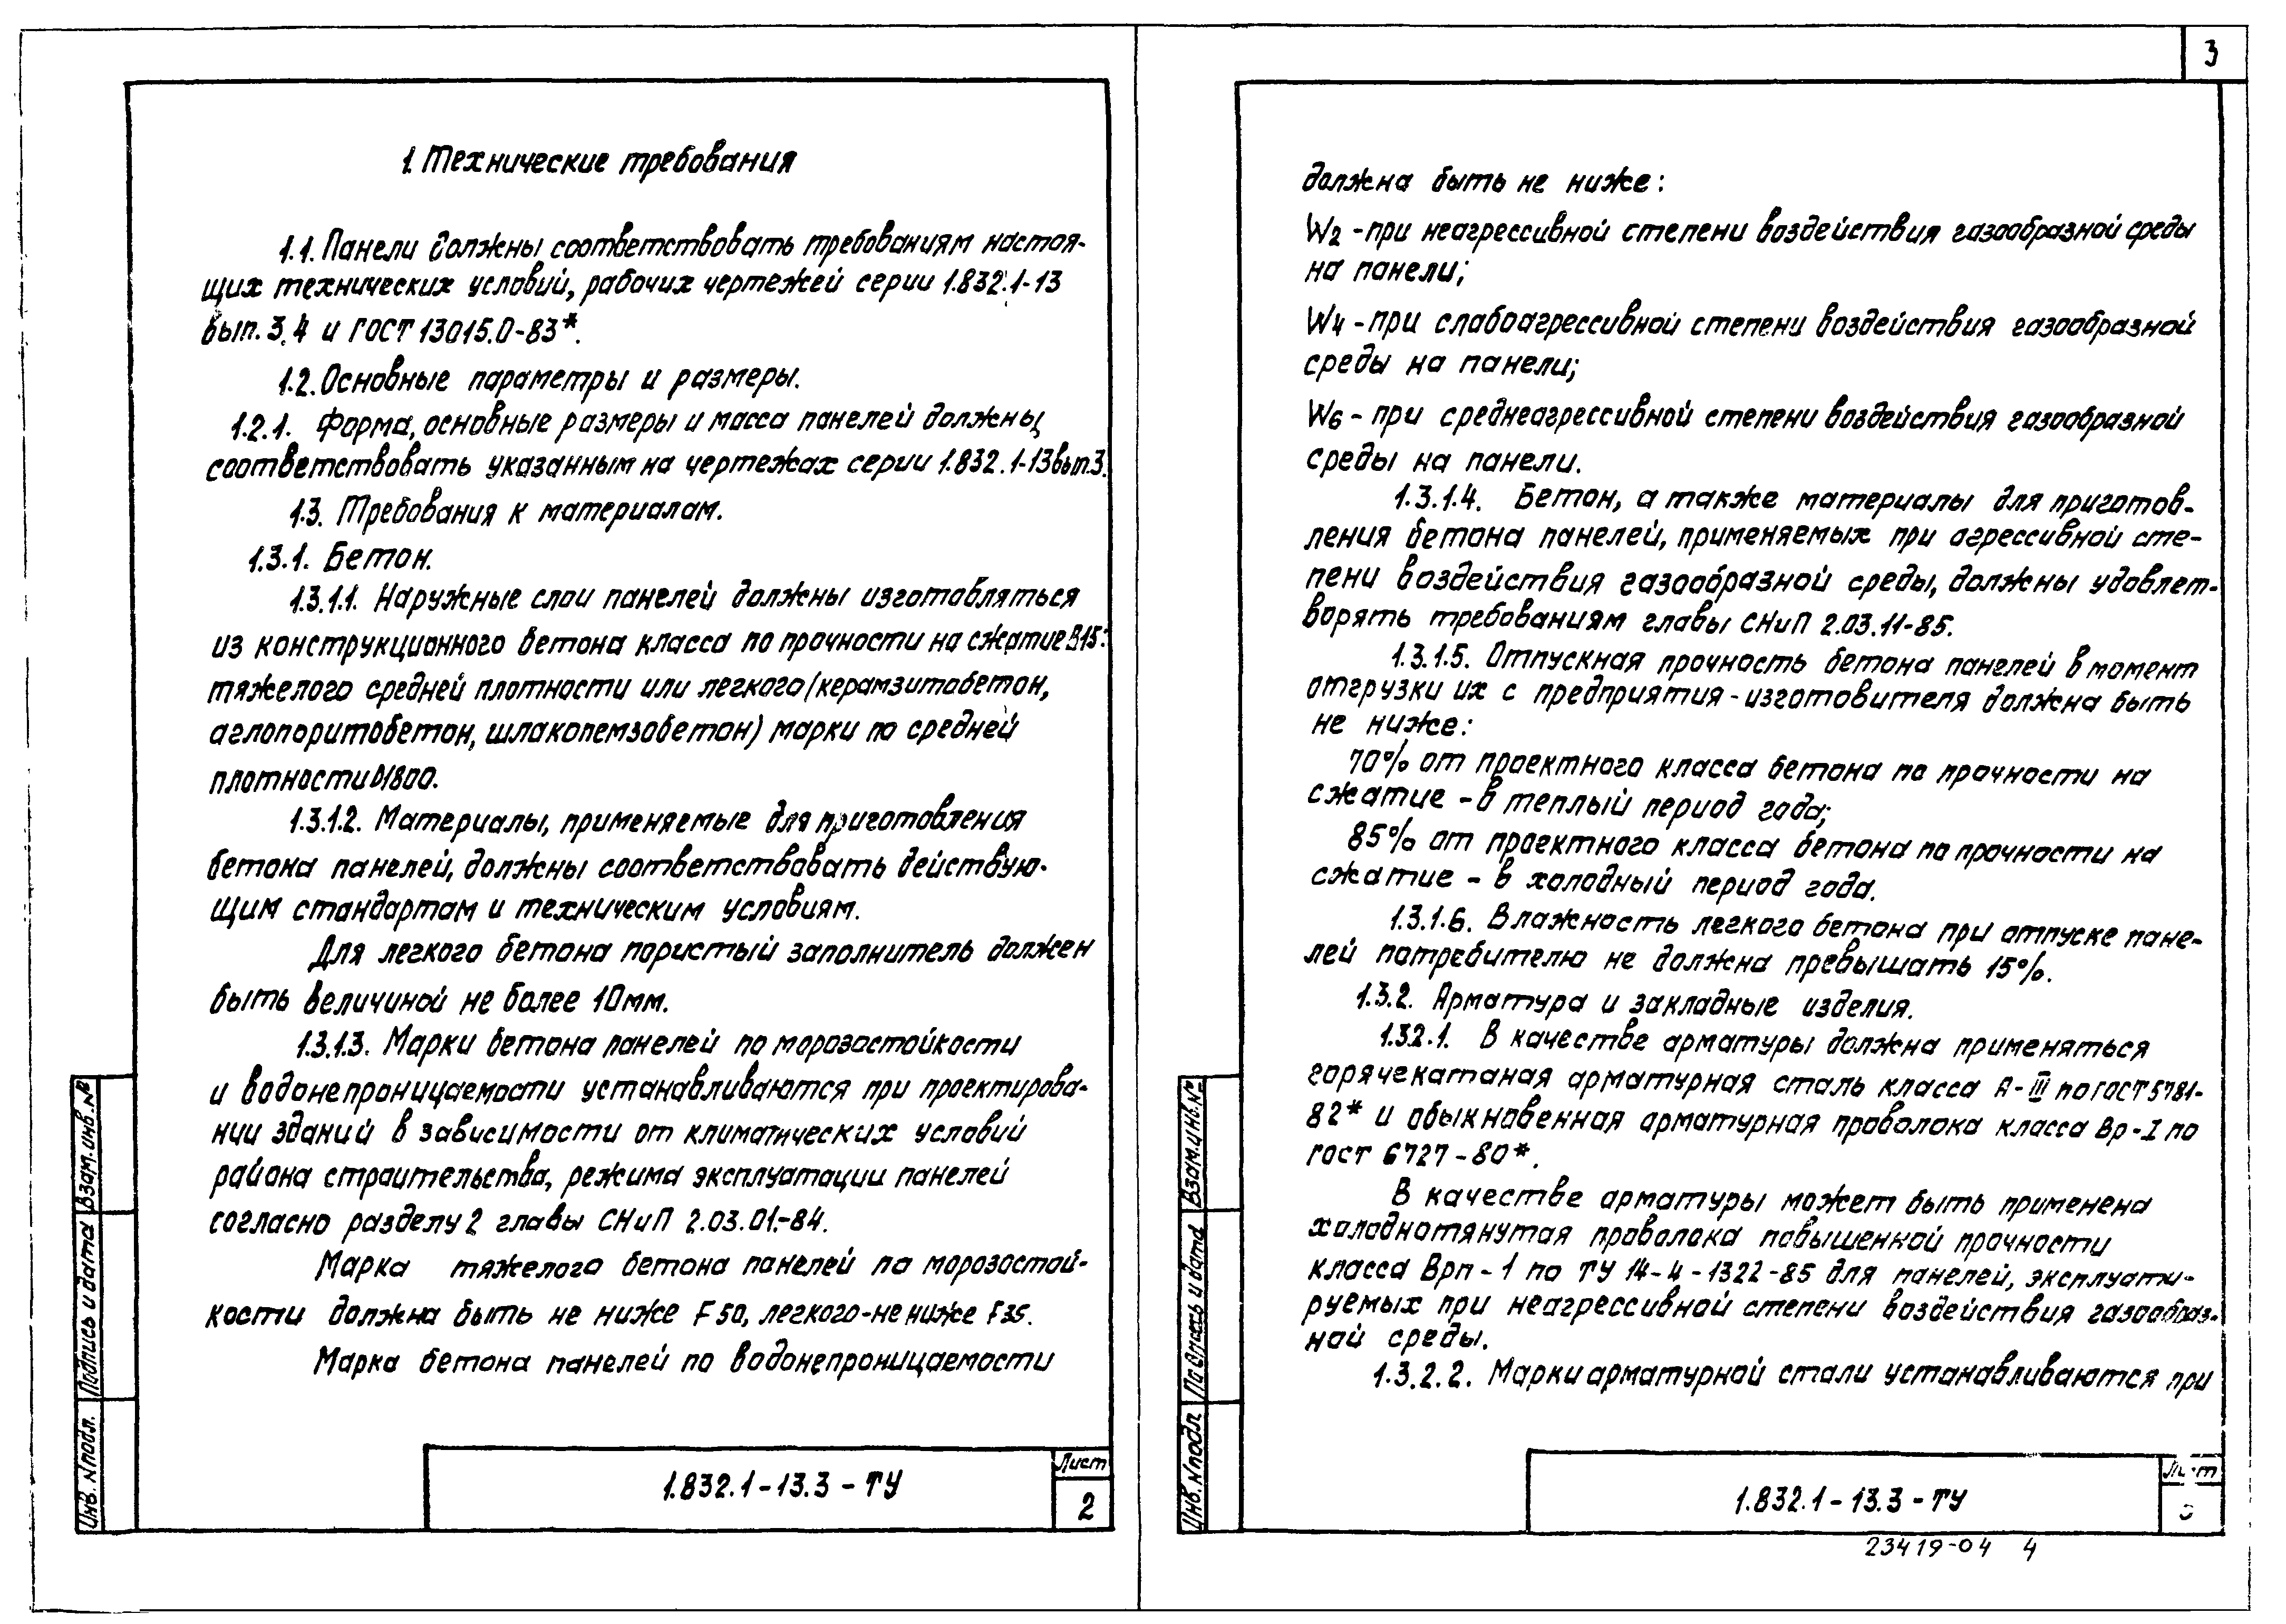 1. Технические требования
1.1. Панели должны соответствовать требованиям настоя-
щих технических условий, рабочих чертежей серии 1.832.1-13
вып. 3, 4 и ГОСТ 13015.0-83*.
1.2. Основные параметры и размеры.
1.2.1. Форма, основные размеры и масса панелей должны
соответствовать указанным на чертежах серии 1.832.1-13 вып.3.
1.3. Требования к материалам.
1.3.1. Бетон.
1.3.1.1. Наружные слои панелей должны изготовляться
из конструкционного бетона класса по прочности на сжатие В15:
тяжелого средней плотности или легкого (керамзитобетон,
аглопоритобетон, шлакопемзобетон) марки по средней
плотности D1800.
1.3.1.2. Материалы, применяемые для приготовления
бетона панелей, должны соответствовать действую-
щим стандартам и техническим условиям.
Для легкого бетона пористый заполнитель должен
быть величиной не более 10мм.
1.3.1.3. Марки бетона панелей по морозостойкости
и водонепроницаемости устанавливаются при проектирова-
нии зданий в зависимости от климатических условий
района строительства, режима эксплуатации панелей
согласно разделу 2 главы СНиП 2.03.01.-84.
Марка тяжелого бетона панелей по морозостой-
кости должна быть не ниже F50, легкого-не ниже F35.
Марка бетона панелей по водонепроницаемости
Взам.инв.№
Подпись и дата
Инв. № подл.
1.832.1-13.3-ТУ
Лист
2
3
должна быть не ниже:
W2 - при неагрессивной степени воздействия газообразной среды
на панели;
W4 - при слабоагрессивной степени воздействия газообразной
среды на панели;
W6 - при среднеагрессивной степени воздействия газообразной
среды на панели.
1.3.1.4. Бетон, а также материалы для приготов-
ления бетона панелей, применяемых при агрессивной сте-
пени воздействия газообразной среды, должны удовлет-
ворять требованиям главы СНиП 2.03.11-85.
1.3.1.5. Отпускная прочность бетона панелей в момент
отгрузки их с предприятия-изготовителя должна быть
не ниже:
70% от проектного класса бетона по прочности на
сжатие - в теплый период года;
85% от проектного класса бетона по прочности на
сжатие - в холодный период года.
1.3.1.6. Влажность легкого бетона при отпуске пане-
лей потребителю не должна превышать 15%.
1.3.2. Арматура и закладные изделия.
1.3.2.1. В качестве арматуры должна применяться
горячекатаная арматурная сталь класса А-III по ГОСТ 5781-
82* и обыкновенная арматурная проволока класса Вр-I по
ГОСТ 6727-80*.
В качестве арматуры может быть применена
холоднотянутая проволока повышенной прочности
класса Врп-1 по ТУ 14-4-1322-85 для панелей, эксплуати-
руемых при неагрессивной степени воздействия газообраз-
ной среды.
1.3.2.2. Марки арматурной стали устанавливаются при
Взам.инв.№
Подпись и дата
Инв. № подл.
1.832.1-13.3-ТУ
Лист
23419-04 4